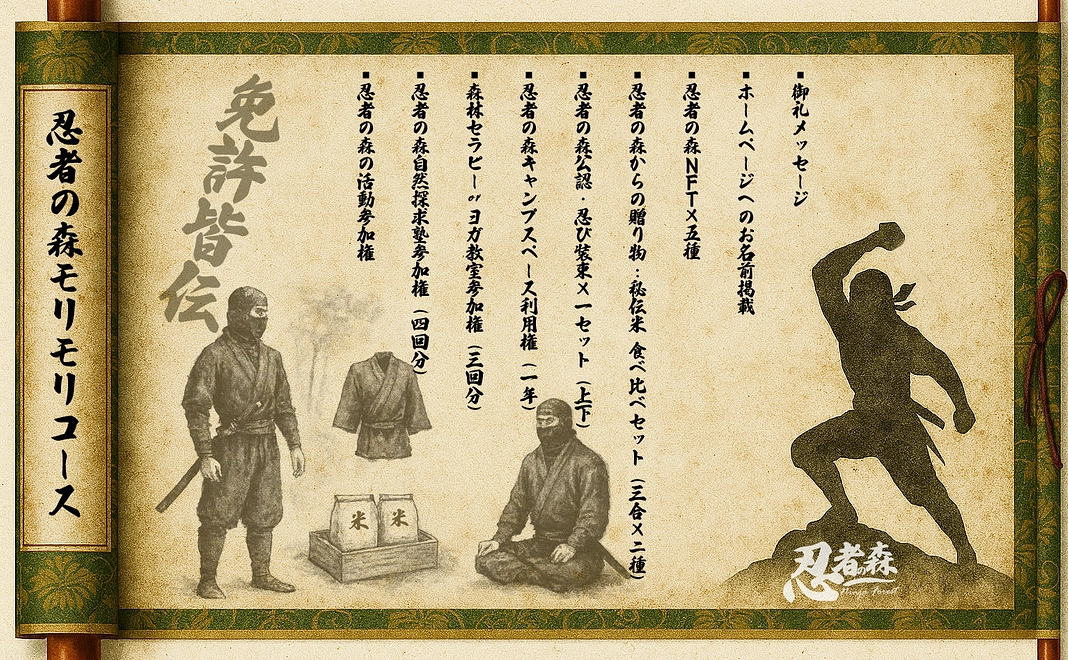 ■御礼メッセージ
■ホームページへのお名前掲載
■忍者の森NFT×五種
■忍者の森からの贈り物：秘伝米 食べ比べセット（三合×二種）
■忍者の森公認・忍び装束×一セット（上下）
■忍者の森キャンプスペース利用権（一年）
■森林セラピーorヨガ教室参加権（三回分）
■忍者の森自然探求塾参加権（四回分）
■忍者の森の活動参加権
免許皆伝
忍者の森モリモリコース
米
米
忍者の森
Ninja Forest